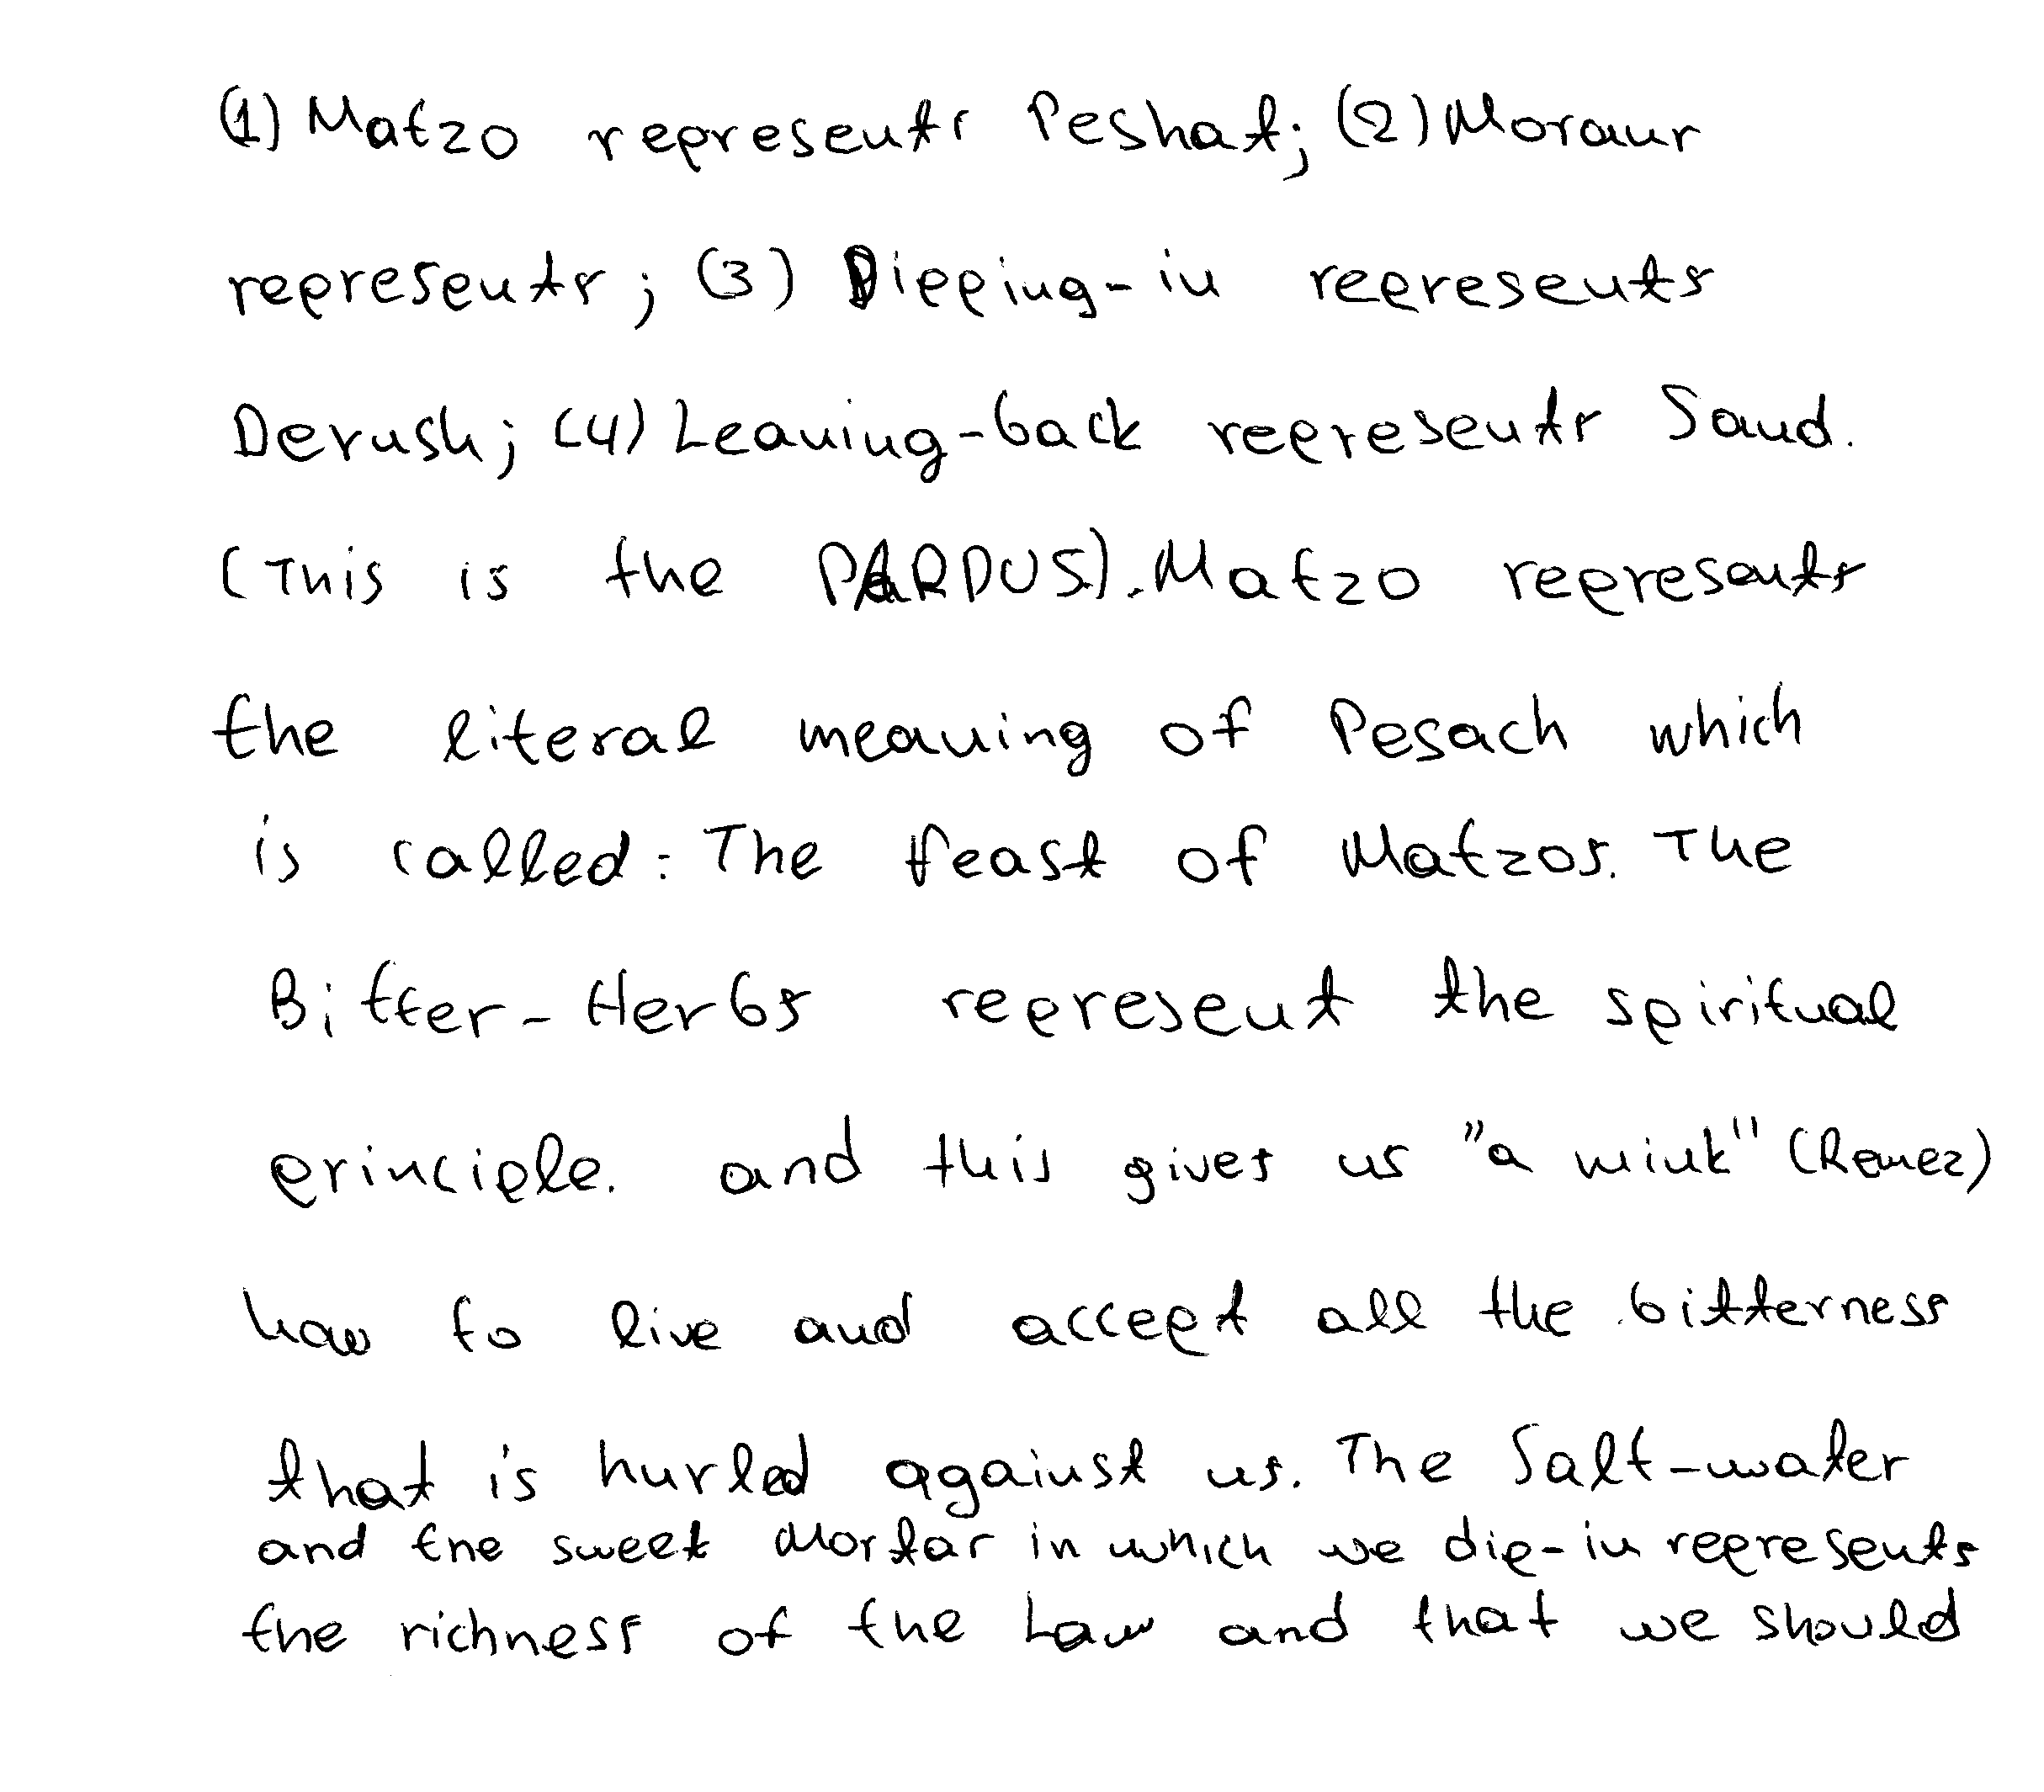 (1) Matzo represents Peshat; (2) Moraur
represents; (3) Dipping-in represents
Derush; (4) Leaning-back represents Saud.
(This is the PARDUS). Matzo represents
the literal meaning of Pesach which
is called: The feast of Matzos. The
Bitter-Herbs represent the spiritual
principle. and this gives us "a wink" (Remez)
how to live and accept all the bitterness
that is hurled against us. The Salt-water
and the sweet Mortar in which we dip-in represents
the richness of the Law and that we should